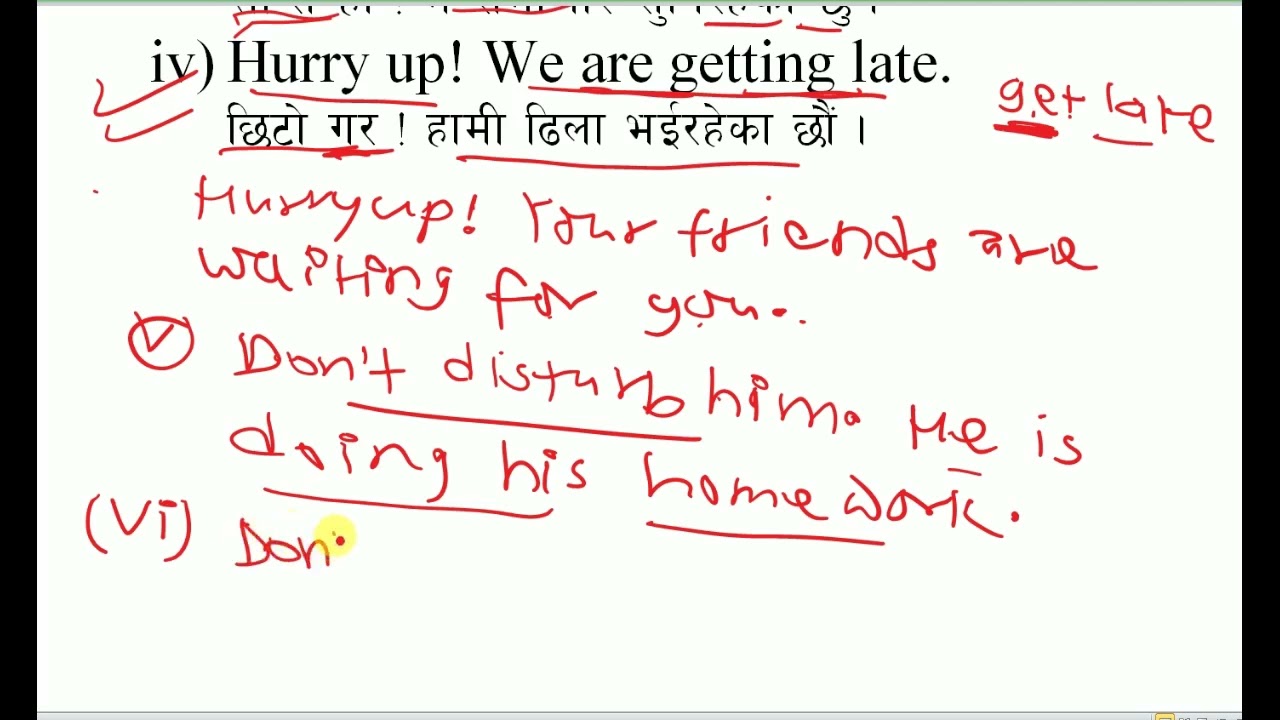 iv) Hurry up! We are getting late.
get late
छिटो गर ! हामी ढिला भईरहेका छौं ।
Hurry up! Your friends are
waiting for you..
(V) Don't disturb him. He is
doing his homework.
(Vi) Don